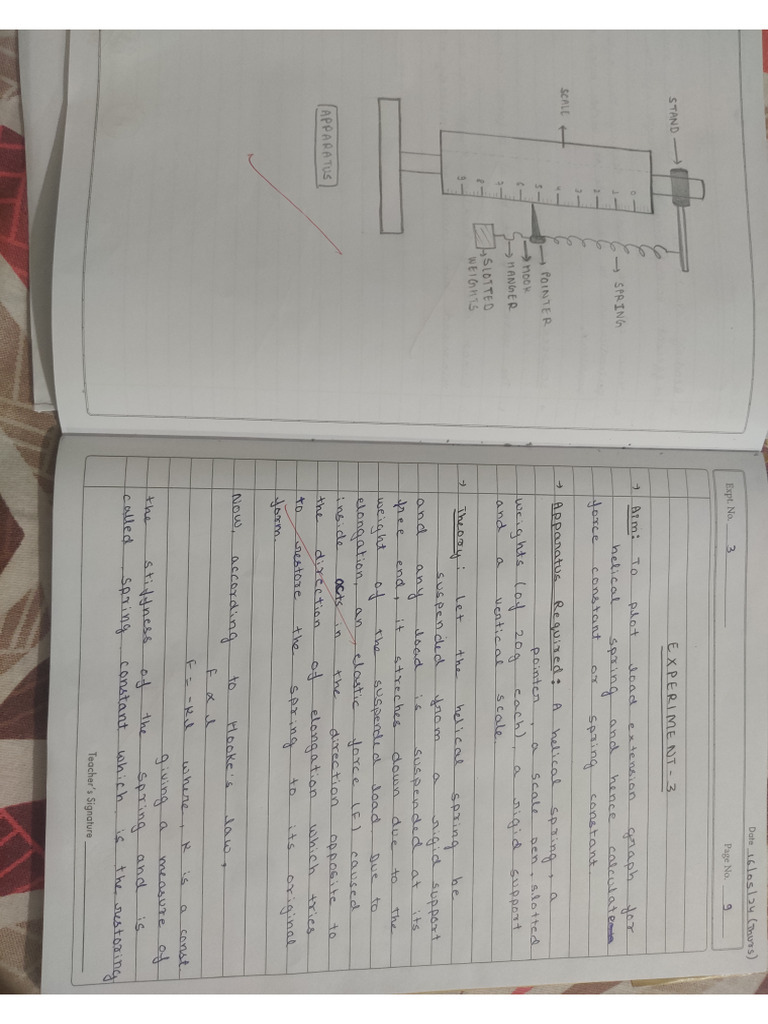 STAND
SCALE
0
1
2
3
4
5
6
7
8
9
SPRING
POINTER
HOOK
HANGER
SLOTTED
WEIGHTS
APPARATUS
Date 16/05/24 (Thurs)
Expt. No. 3
Page No. 9
EXPERIMENT-3
→ Aim: To plot load extension graph for
helical spring and hence calculate
force constant or spring constant
→ Apparatus Required: A helical spring, a
pointer, a scale pen, slotted
weights (of 20g each), a rigid support
and a vertical scale.
→ Theory: Let the helical spring be
suspended from a rigid support
and any load is suspended at its
free end, it streches down due to the
weight of the suspended load. Due to
elongation, an elastic force (F) caused
inside acts in the direction opposite to
the direction of elongation which tries
to restore the spring to its original
form.
Now, according to Hooke's law,
F ∝ l
F = -Kl where, K is a const.
giving a measure of
the stiffness of the spring and is
called spring constant which is the restoring
Teacher's Signature